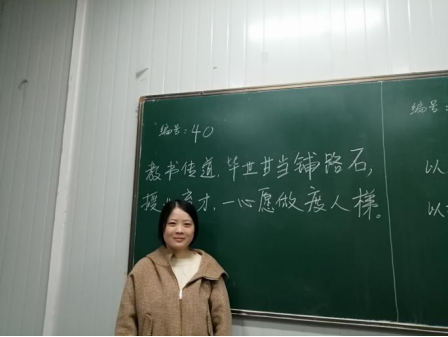 编号:40
教书传道,毕世甘当铺路石,
授业育才,一心愿做度人梯。
以
以